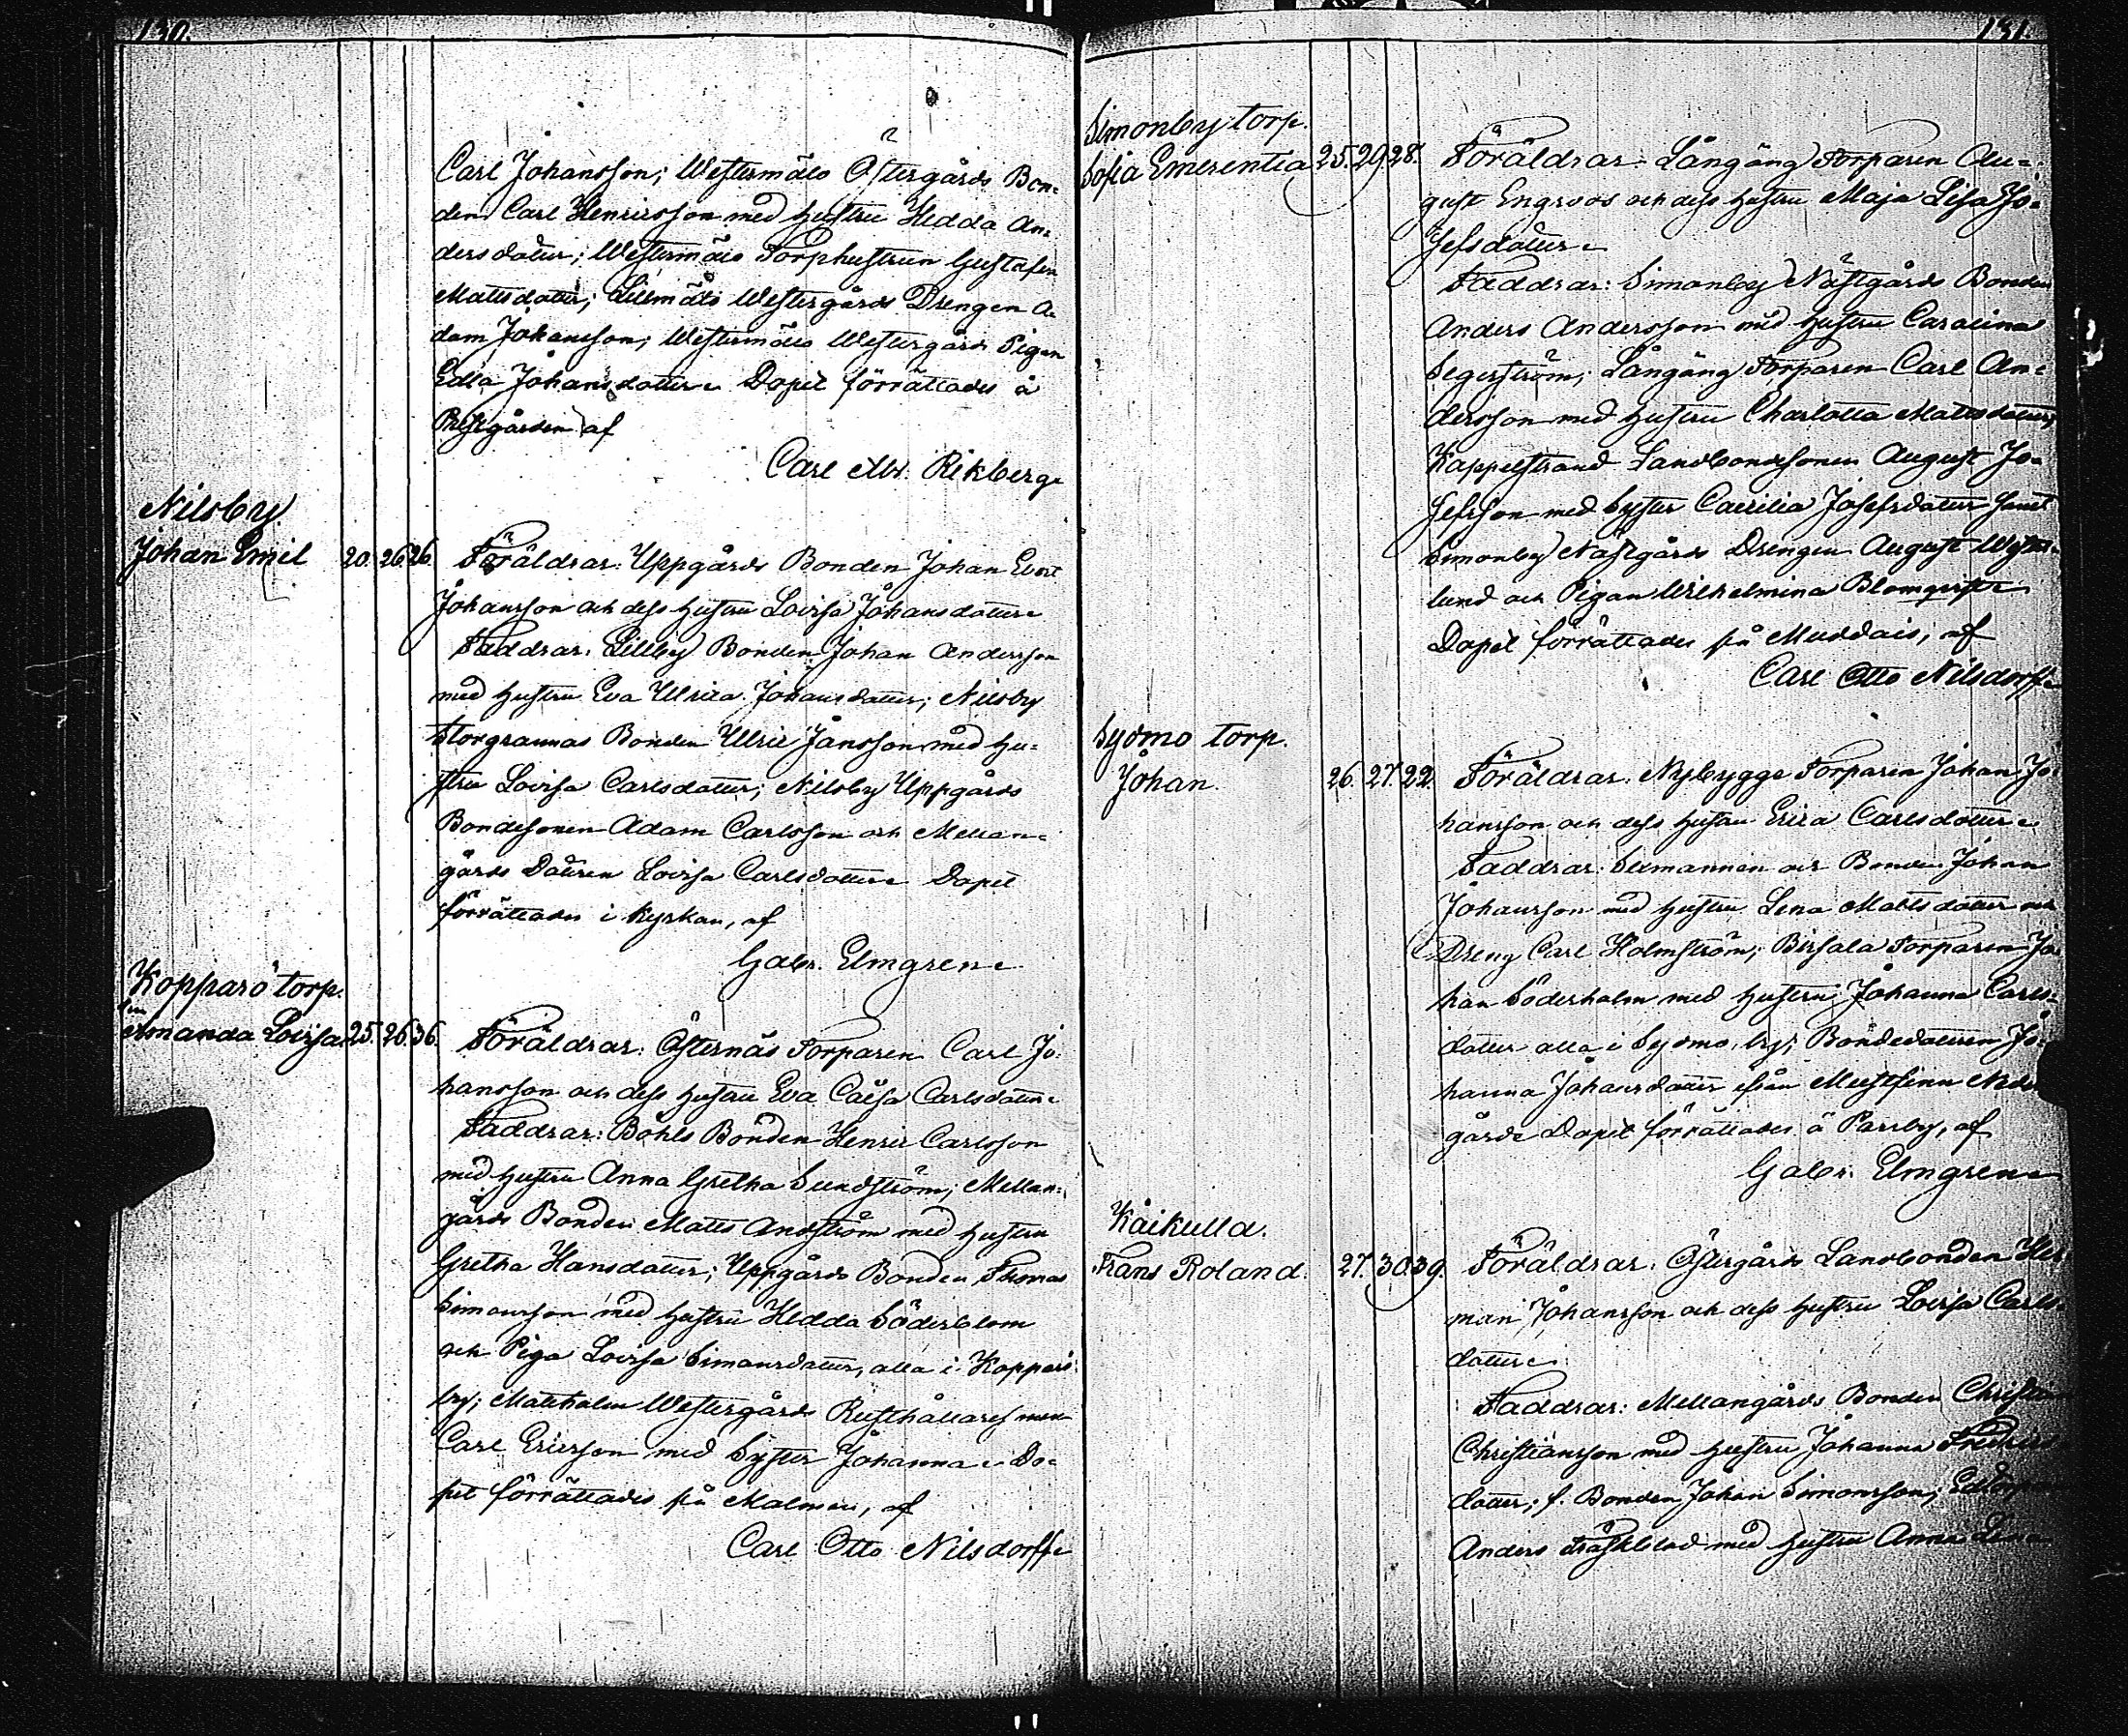 130.
Carl Johansson; Westermälö Östergårds Bon-
den Carl Henricsson med hustru Hedda An-
dersdatter; Westermälö Torphustrun Gustafva
Mattsdatter; Lillmälö Westergårds Drengen A-
dam Johansson; Westermälö Westergårds Pigan
Edla Johansdatter. Dopet förrättades å
Prestgården af
Carl Rikberg.
Nilsby.
Johan Emil 20. 26. 26. Föräldrar: Uppgårds Bonden Johan Evert
Johansson och dess hustru Lovisa Johansdatter.
Faddrar: Lillby Bonden Johan Andersson
med hustru Eva Ulrica Johansdatter; Nilsby
Storgrannas Bonden Ulric Jansson med hu-
stru Lovisa Carlsdatter; Nilsby Uppgårds
Bondesonen Adam Carlsson och Mellan-
gårds Dottren Lovisa Carlsdatter. Dopet
förrättades i kyrkan, af
Gabr. Elmgren.
Kopparö torp.
Amanda Lovisa 25. 26. 36. Föräldrar: Östernäs Torparen Carl Jo-
hansson och dess hustru Eva Caisa Carlsdatter.
Faddrar: Böhls Bonden Henric Carlsson
med hustru Anna Gretha Sundström; Mellan-
gårds Bonden Matts Andström med hustru
Gretha Hansdatter; Uppgårds Bonden Thomas
Simonsson med hustru Hedda Söderblom
och Piga Lovisa Simonsdatter, alla i Kopparö
by; Mattholm Westergårds Rusthållares
Carl Ericsson med Syster Johanna. Do-
pet förrättades på Malmen, af
Carl Otto Nilsdorff.
131.
Simonby torp.
Sofia Emerentia 25. 29. 28. Föräldrar: Långäng Torparen Au-
gust Engroos och dess hustru Maja Lisa Jo-
sefsdatter.
Faddrar: Simonby Nästgårds Bonden
Anders Andersson med hustru Carolina
Segerström; Långäng Torparen Carl An-
dersson med hustru Charlotta Mattsdatter;
Kappelstrand Landbondesonen August Jo-
sefsson med Syster Caecilia Josefsdatter samt
Simonby Nästgårds Drengen August
lund och Pigan Wilhelmina Blomqvist.
Dopet förrättades på Muddais, af
Carl Otto Nilsdorff.
Sydmo torp.
Johan. 26. 27. 22. Föräldrar: Nybygge Torparen Johan Jo-
hansson och dess hustru Erica Carlsdatter.
Faddrar: och Bonden Johan
Johansson med hustru Lena Mattsdatter och
Dreng Carl Holmström; Torparen Jo-
han Söderholm med hustru Johanna Carls-
datter alla i Sydmo by; Bondedottren Jo-
hanna Johansdatter ifrån Mustfinn Neder-
gårds. Dopet förrättades å Parsby, af
Gabr. Elmgren.
Kåikulla.
Frans Roland. 27. 30. 39. Föräldrar: Östergårds Landbonden Her-
man Johansson och dess hustru Lovisa Carls-
datter.
Faddrar: Mellangårds Bonden Christian
Christiansson med hustru Johanna Fredrics-
datter; f. Bonden Johan Simonsson;
Anders Träskblod med hustru Anna Lena